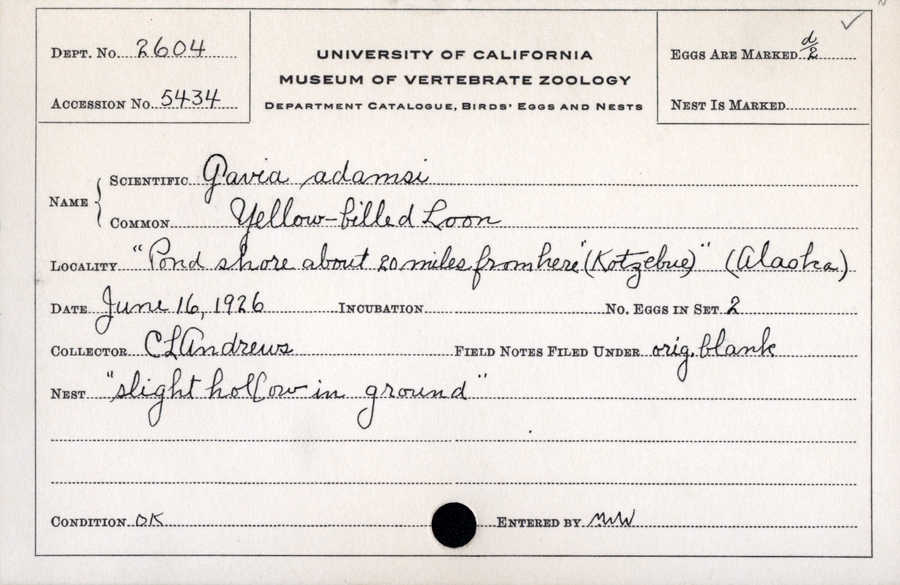 DEPT. No. 2604
ACCESSION No. 5434
UNIVERSITY OF CALIFORNIA
MUSEUM OF VERTEBRATE ZOOLOGY
DEPARTMENT CATALOGUE, BIRDS' EGGS AND NESTS
EGGS ARE MARKED d/2
NEST IS MARKED
NAME { SCIENTIFIC Gavia adamsi
COMMON Yellow-billed Loon
LOCALITY "Pond shore about 20 miles from here" (Kotzebue)" (Alaska)
DATE June 16, 1926 INCUBATION No. EGGS IN SET 2
COLLECTOR C L Andrews FIELD NOTES FILED UNDER orig. blank
NEST "slight hollow in ground"
CONDITION OK ENTERED BY